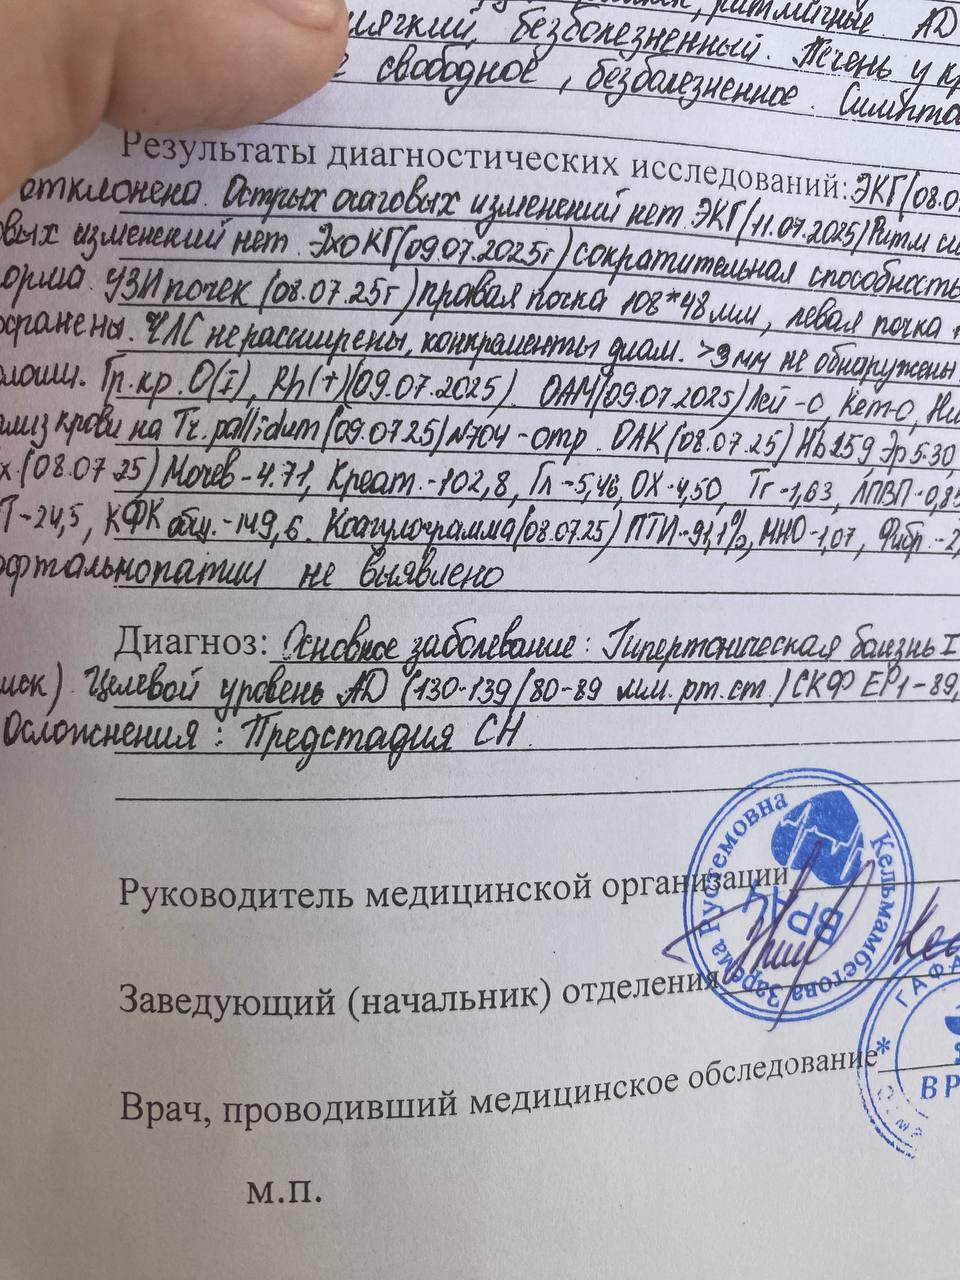 ритмичные. АД
мягкий, безболезненный. Печень у кр
е свободное, безболезненное. Симпто
Результаты диагностических исследований: ЭКГ(08.0
отклонена. Острых очаговых изменений нет. ЭКГ(11.07.2025) Ритм си
овых изменений нет. ЭхоКГ(09.07.2025г) сократительная способность
орма. УЗИ почек (08.07.25г) правая почка 108*48 мм, левая почка
охранены. ЧЛС не расширены, конкременты диам. >3 мм не обнаружены
Гр.кр. O(I), Rh(+)(09.07.2025). ОАМ(09.07.2025) Лей-0, Кет-0, Ни
ализ крови на Tr. pallidum (09.07.25) №704-отр. ОАК(08.07.25) Hb 159, Эр 5.30,
х.(08.07.25) Мочев-4.71, Креат.-102,8, Гл-5,46, ОХ-4,50, Тг-1,63, ЛПВП-0,8
Т-24,5, КФК общ.-149,6. Коагулограмма(08.07.25) ПТИ-91,1%, МНО-1,07, Фибр.-2,
офтальмопатии не выявлено
Диагноз: Основное заболевание: Гипертоническая болезнь I
иск). Целевой уровень АД (130-139/80-89 мм.рт.ст.) СКФ EPI-89,
Осложнения: Предстадия СН.
Руководитель медицинской организации
Кельмамбетова Зарема Рустемовна
ВРАЧ
Заведующий (начальник) отделения
ГАФА
Врач, проводивший медицинское обследование
ВР
м.п.